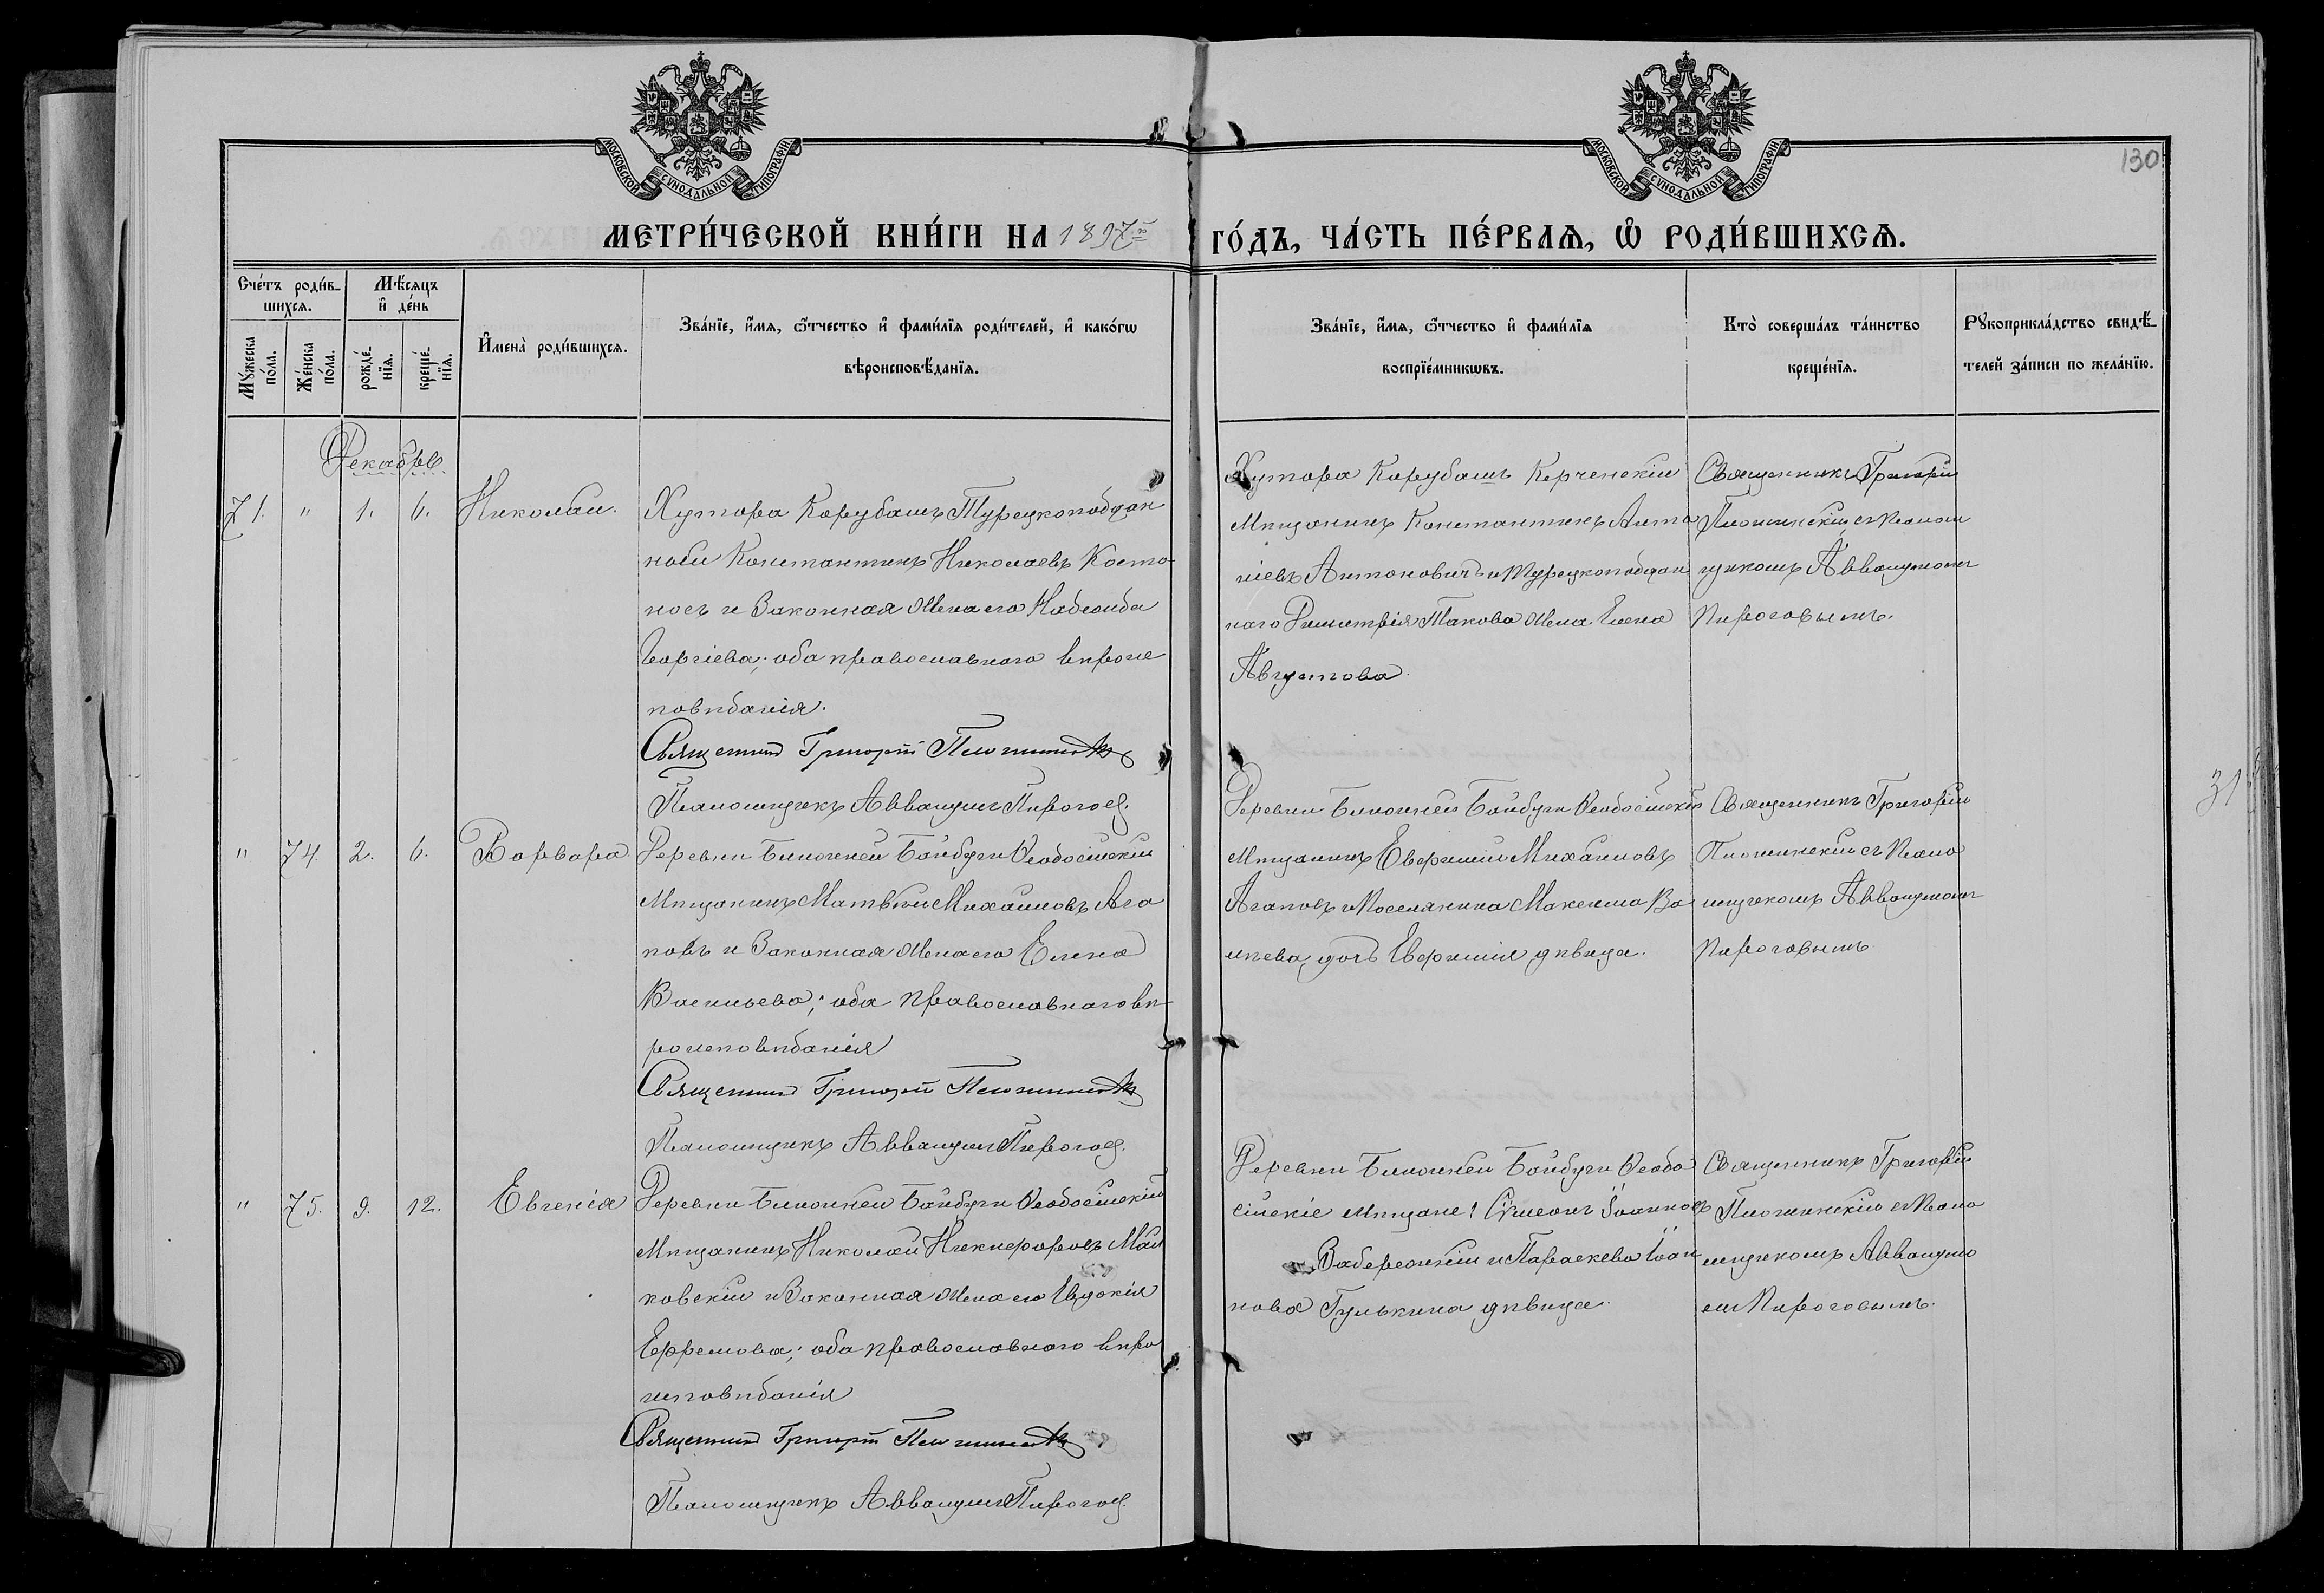 МОСКОВСКОЙ СУНОДАЛЬНОЙ ТИПОГРАФІИ
МОСКОВСКОЙ СУНОДАЛЬНОЙ ТИПОГРАФІИ
130
МЕТРИ́ЧЕСКОЙ КНИ́ГИ НА 1897й
ГО́ДЪ, ЧА́СТЬ ПЕ́РВАѦ, Ѡ҆ РОДИ́ВШИХСѦ.
Сче́тъ роди́в-
шихсѧ.
Мѣ́сѧцъ
и҆ де́нь
Мꙋ́жеска
по́ла.
Же́нска
по́ла.
рожде́-
нїѧ.
креще́-
нїѧ.
И҆мена̀ роди́вшихсѧ.
Зва́нїе, и҆́мѧ, ѻ҆́тчество и҆ фами́лїѧ роди́телей, и҆ како́гѡ
вѣроисповѣ́данїѧ.
Зва́нїе, и҆́мѧ, ѻ҆́тчество и҆ фами́лїѧ
воспрїе́мникѡвъ.
Кто̀ соверша́лъ та́инство
креще́нїѧ.
Рꙋкоприкла́дство свидѣ́-
телей за́писи по жела́нїю.
Декабрь
71. " 1. 6. Николай.
Хутора Карубашъ Турецкоподдан
ный Константинъ Николаевъ Косто-
носъ и Законная Жена его Надежда
Георгіева; оба православнаго вѣроис
повѣданія.
Священникъ Григорій
Псаломщикъ Аввакумъ Пироговъ
Хутора Карубашъ Керченскій
Мѣщанинъ Константинъ Анта
ніевъ Антоновичъ и Турецкоподдан
наго Димитрія Такова Жена Елена
Августова.
Священникъ Григорій
съ Псалом
щикомъ Аввакумомъ
Пироговымъ.
" 74. 2. 6. Варвара
Деревни Ближней Байбуги Ѳеодосійскій
Мѣщанинъ Матвѣй Михайловъ Ага
повъ и Законная Жена его Елена
Васильева; оба Православнаго вѣ-
роисповѣданія
Священникъ Григорій
Псаломщикъ Аввакумъ Пироговъ
Деревни Ближней Байбуги Ѳеодосійскій
Мѣщанинъ Евфимій Михайловъ
Агаповъ и Поселянина Максима Ва
дочь Евфимія дѣвица.
Священникъ Григорій
съ Псало
мщикомъ Аввакумомъ
Пироговымъ
31
" 75. 9. 12. Евгенія
Деревни Ближней Байбуги Ѳеодосійскій
Мѣщанинъ Николай Никифоровъ Май
ковскій и Законная Жена его Евдокія
Ефремова; оба православнаго вѣро
исповѣданія
Священникъ Григорій
Псаломщикъ Аввакумъ Пироговъ
Деревни Ближней Байбуги Ѳеодо
сійскіе Мѣщане: Сѵмеонъ Іоанновъ
Забережный и Параскева Іоан
нова Гулькина дѣвица.
Священникъ Григорій
съ Псало
мщикомъ Аввакумо
мъ Пироговымъ.